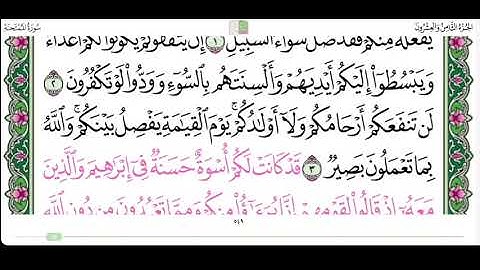 الجزء الثامن والعشرون
سورة الممتحنة
يَفْعَلْهُ مِنكُمْ فَقَدْ ضَلَّ سَوَآءَ ٱلسَّبِيلِ ١ إِن يَثْقَفُوكُمْ يَكُونُوا۟ لَكُمْ أَعْدَآءً
وَيَبْسُطُوٓا۟ إِلَيْكُمْ أَيْدِيَهُمْ وَأَلْسِنَتَهُم بِٱلسُّوٓءِ وَوَدُّوا۟ لَوْ تَكْفُرُونَ ٢
لَن تَنفَعَكُمْ أَرْحَامُكُمْ وَلَآ أَوْلَـٰدُكُمْ ۚ يَوْمَ ٱلْقِيَـٰمَةِ يَفْصِلُ بَيْنَكُمْ ۚ وَٱللَّهُ
بِمَا تَعْمَلُونَ بَصِيرٌ ٣ قَدْ كَانَتْ لَكُمْ أُسْوَةٌ حَسَنَةٌ فِىٓ إِبْرَٰهِيمَ وَٱلَّذِينَ
مَعَهُۥٓ إِذْ قَالُوا۟ لِقَوْمِهِمْ إِنَّا بُرَءَٰٓؤُا۟ مِنكُمْ وَمِمَّا تَعْبُدُونَ مِن دُونِ ٱللَّهِ
٥٤٩